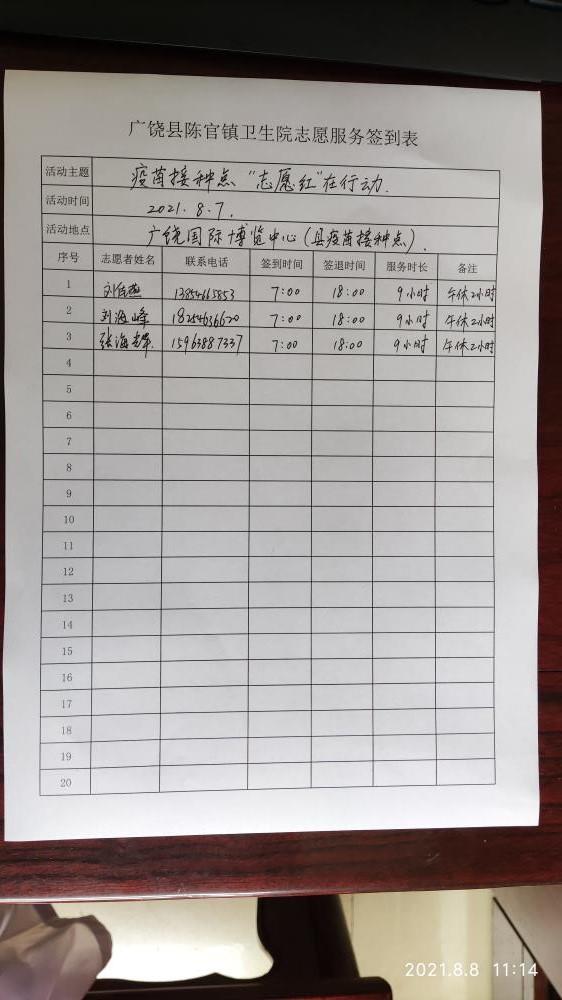 广饶县陈官镇卫生院志愿服务签到表
活动主题 疫苗接种点“志愿红”在行动.
活动时间 2021.8.7.
活动地点 广饶国际博览中心(县疫苗接种点).
序号 志愿者姓名 联系电话 签到时间 签退时间 服务时长 备注
1 13854665853 7:00 18:00 9小时 午休2小时
2 刘海峰 18254636620 7:00 18:00 9小时 午休2小时
3 张海 15963887337 7:00 18:00 9小时 午休2小时
4
5
6
7
8
9
10
11
12
13
14
15
16
17
18
19
20
2021.8.8 11:14